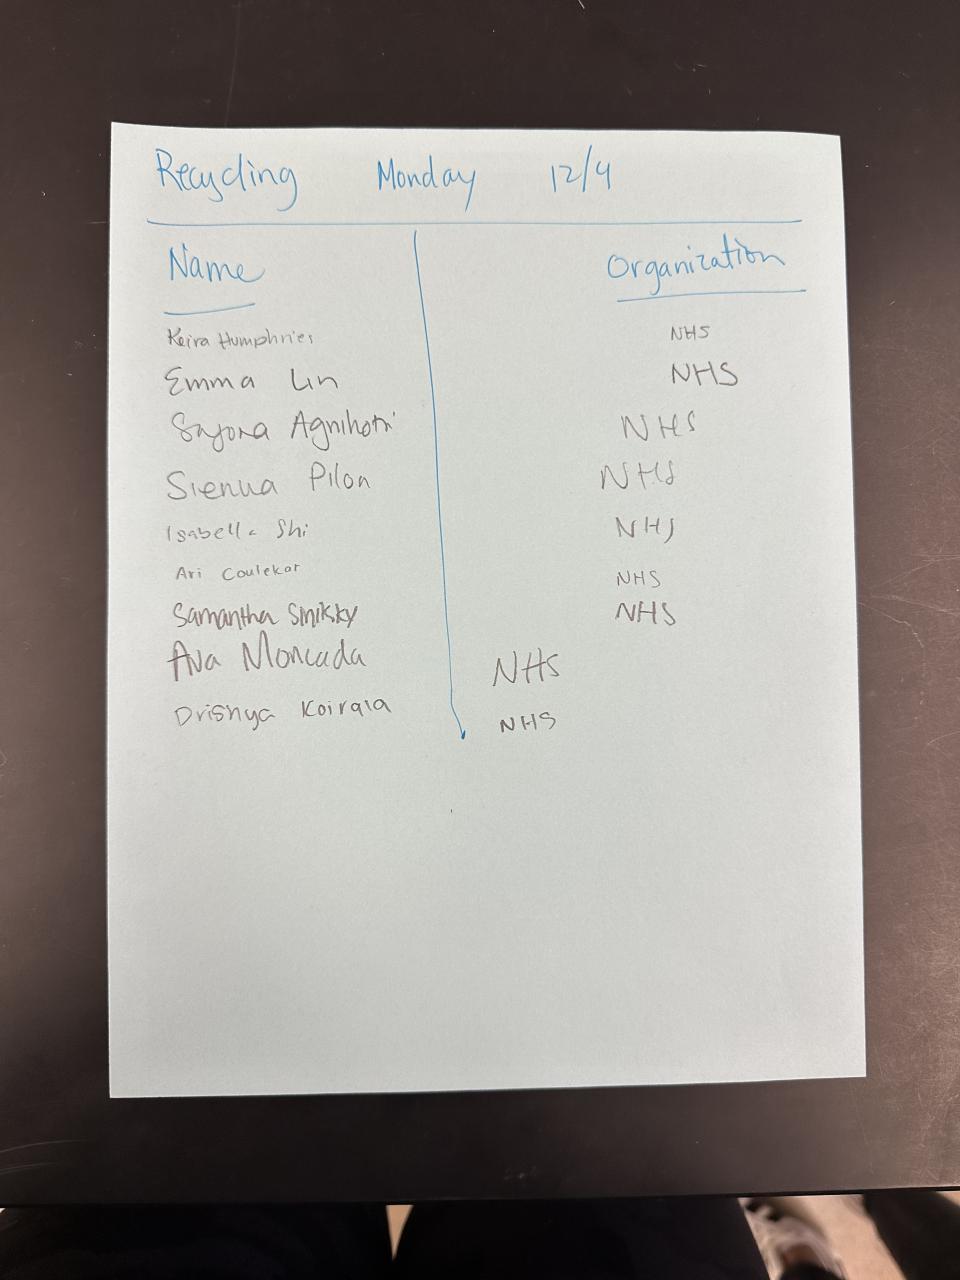 Recycling Monday 12/4
Name Organization
Keira Humphries NHS
Emma Lin NHS
Agnihotri NHS
Sienna Pilon NHS
Isabella Shi NHS
Ari Coulekar NHS
Samantha Sinikky NHS
Ava Moncada NHS
Drishya Koirala NHS